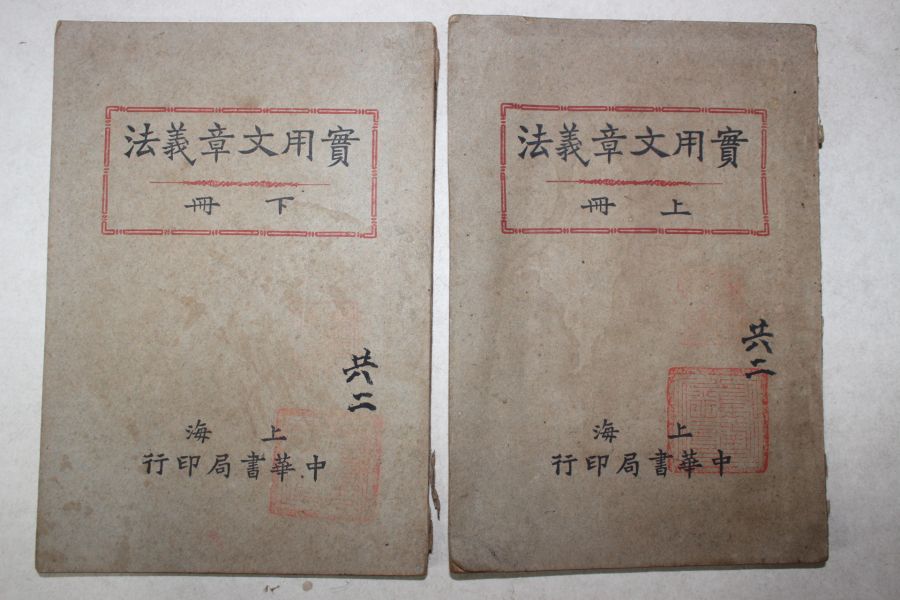 實用文章義法
上冊
共二
上海
中華書局印行
實用文章義法
下冊
共二
上海
中華書局印行